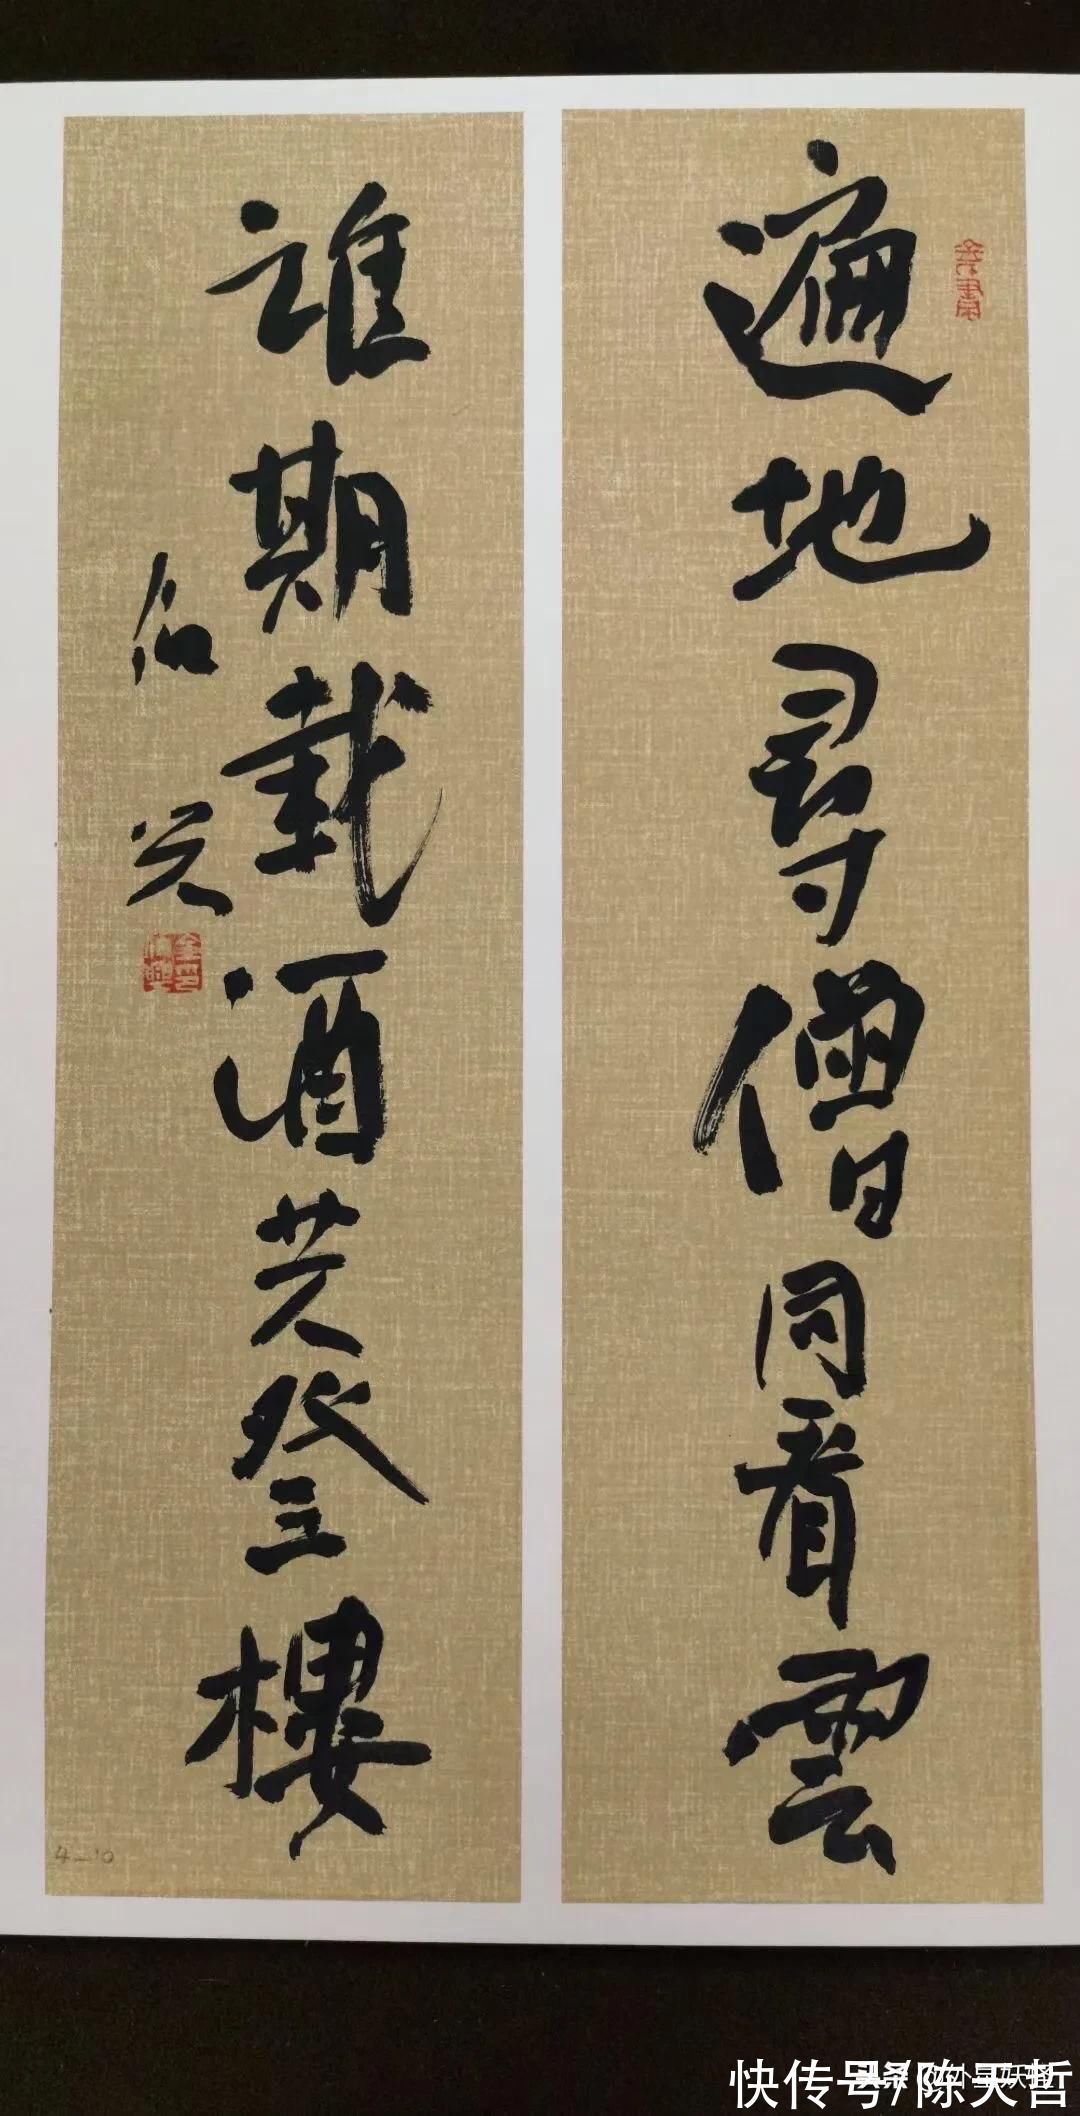 遍地尋僧同看雲
誰期載酒共登樓
4-10
快传号/陈天哲